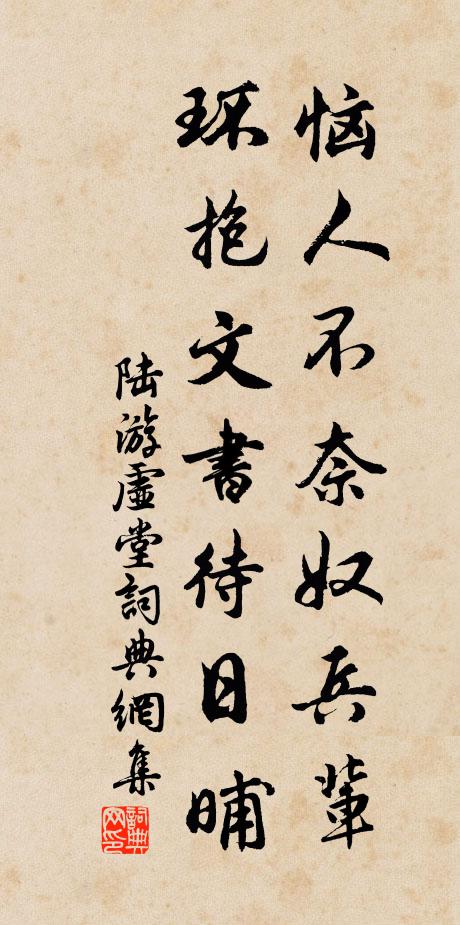 恼人不奈奴兵輩
环抱文書待日晡
陆游虚堂詞典網集
詞典网印